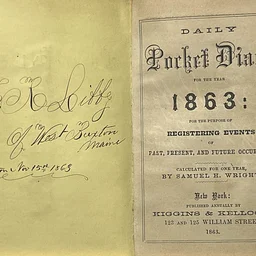 K Libby
Of West Buxton
Maine
Nov 15th 1863
DAILY
Pocket Dia
FOR THE YEAR
1863:
FOR THE PURPOSE OF
REGISTERING EVENTS
OF
PAST, PRESENT, AND FUTURE OCCUR
CALCULATED FOR ONE YEAR,
BY SAMUEL H. WRIGH
New York:
PUBLISHED ANNUALLY BY
KIGGINS & KELLOG
123 AND 125 WILLIAM STREE
1863.